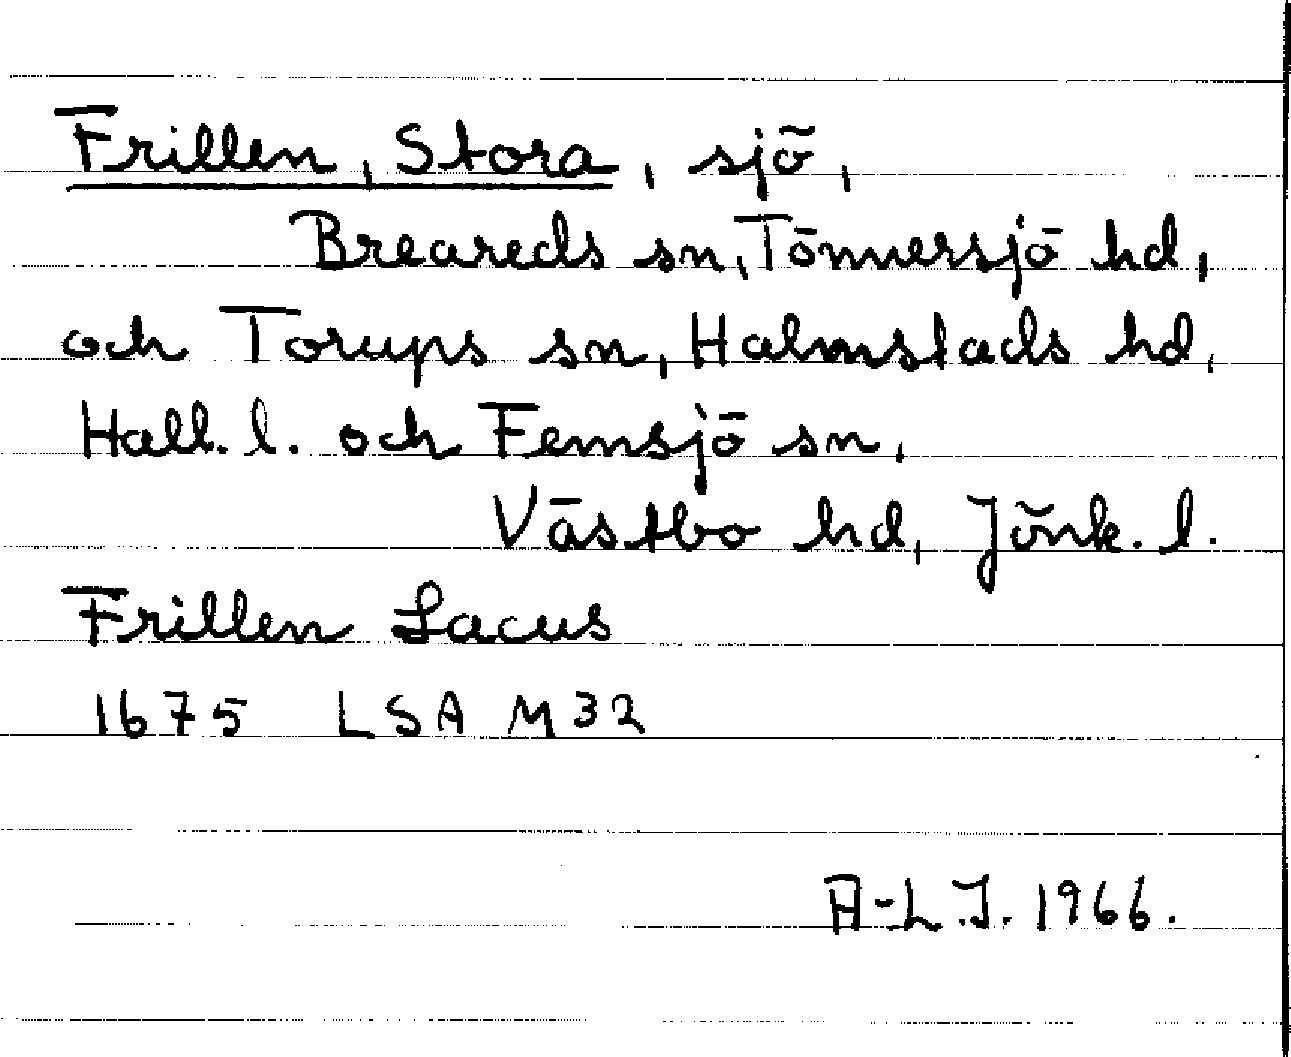 Frillen, Stora, sjö,
Breareds sn, Tönnersjö hd,
och Torups sn, Halmstads hd,
Hall. l. och Femsjö sn,
Västbo hd, Jönk. l.
Frillen Lacus
1675 LSA M32
A-L.J. 1966.